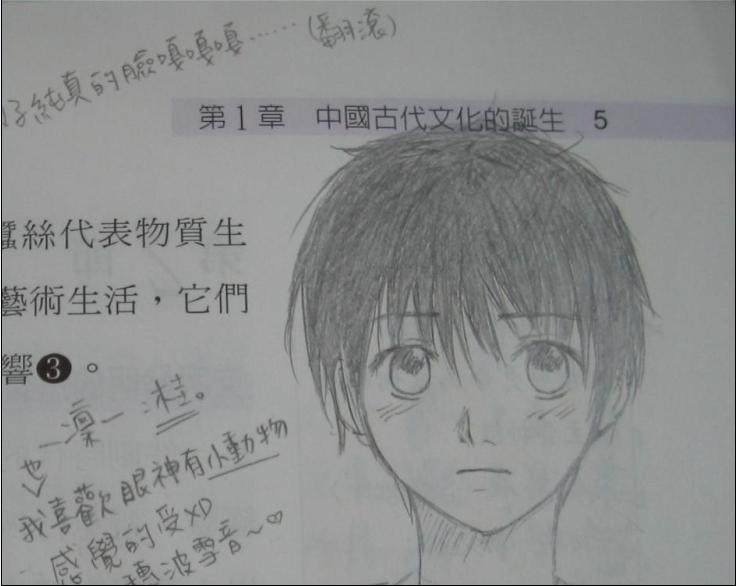 好純真的臉嘎嘎嘎……(翻滾)
第1章 中國古代文化的誕生 5
蠶絲代表物質生
藝術生活，它們
響❸。
凜 :桂。
也
我喜歡眼神有小動物
感覺的受XD
波雪音~♡